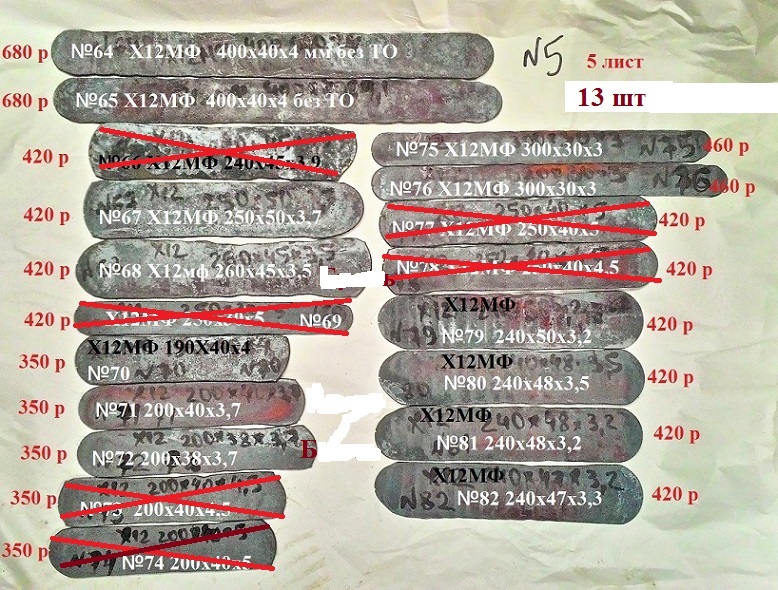 N5 5 лист
13 шт
680 р №64 Х12МФ 400х40х4 мм без ТО
680 р №65 Х12МФ 400х40х4 без ТО
420 р №66 Х12МФ 240х45х3,9
420 р №67 Х12МФ 250х50х3,7
420 р №68 Х12мф 260х45х3,5
420 р Х12МФ 250х30х5 №69
Х12МФ 190Х40х4
350 р №70
350 р №71 200х40х3,7
350 р №72 200х38х3,7 Б
350 р №73 200х40х4,5
350 р №74 200х40х5
№75 Х12МФ 300х30х3 N75 460 р
№76 Х12МФ 300х30х3 N76 460 р
№77 Х12МФ 250х40х5 420 р
№78 Х12МФ 250х40х4.5 420 р
Х12МФ
№79 240х50х3,2 420 р
Х12МФ
№80 240х48х3,5 420 р
Х12МФ
№81 240х48х3,2 420 р
Х12МФ
N82 №82 240х47х3,3 420 р